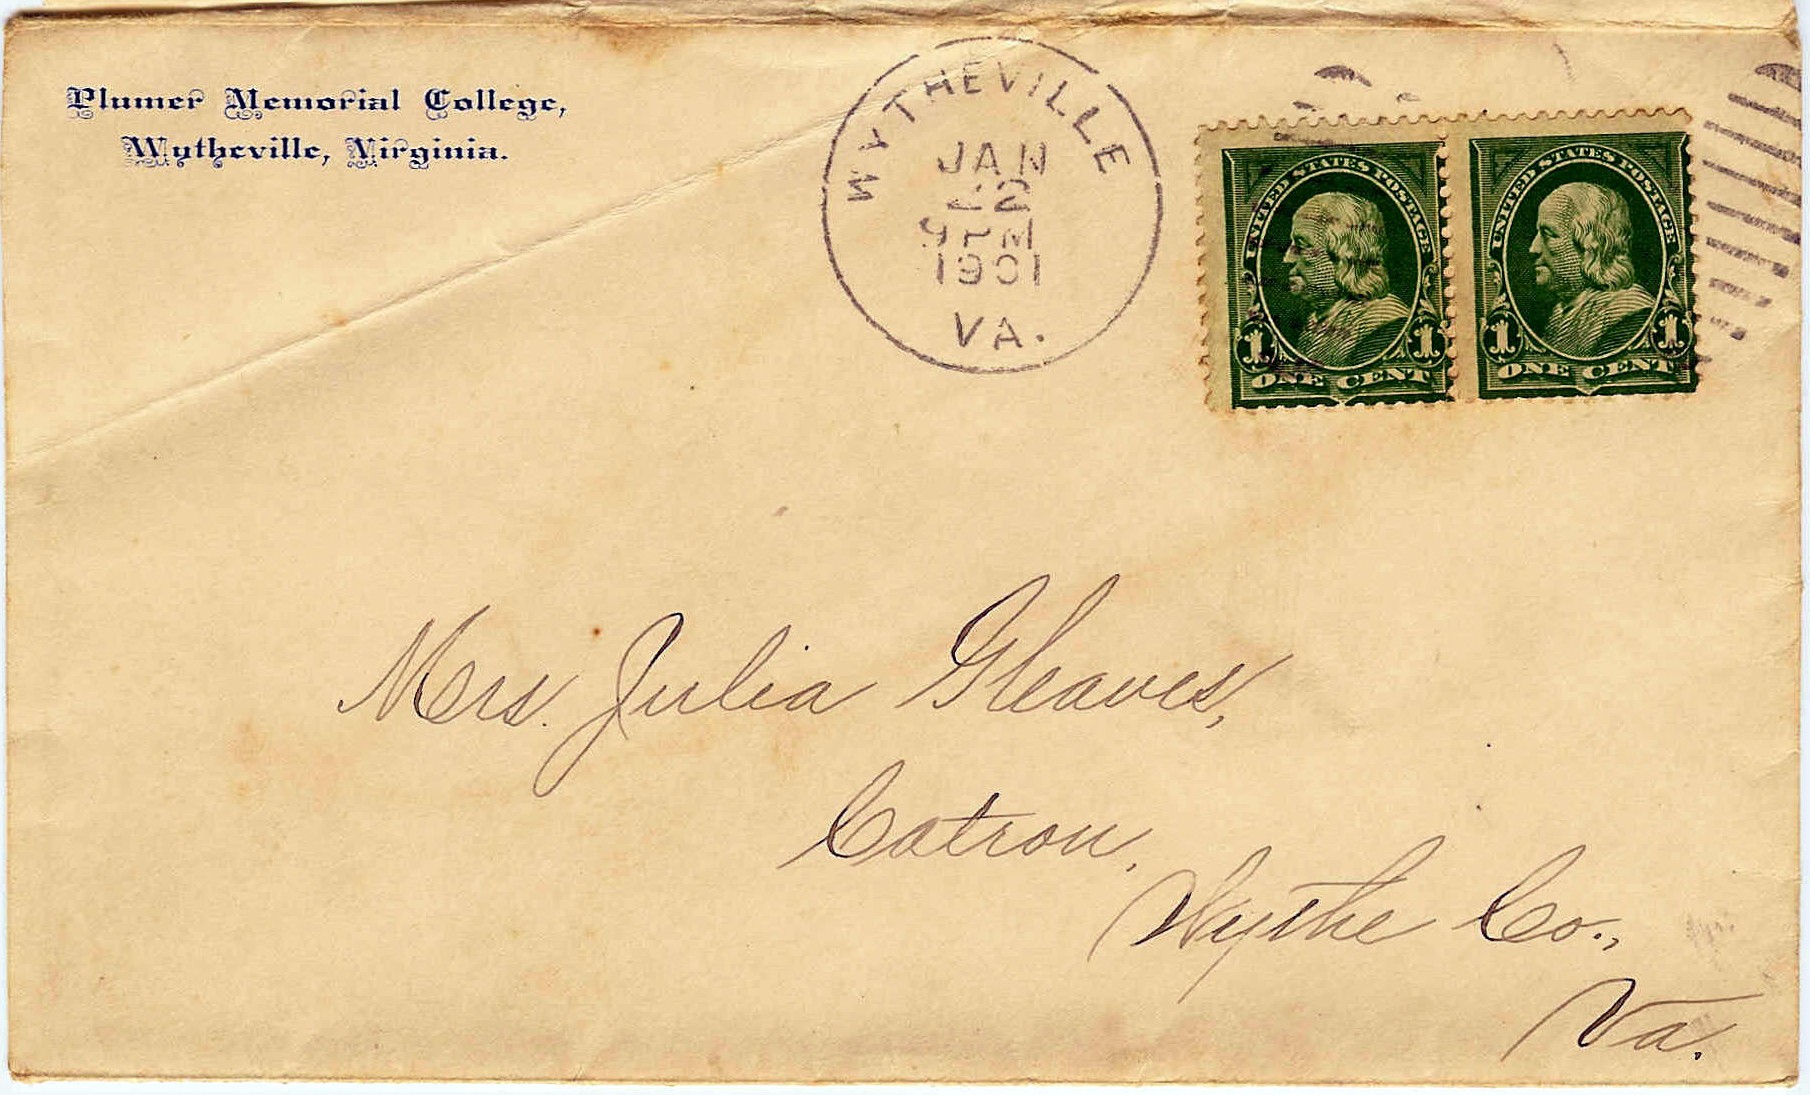 Plumer Memorial College,
Wytheville, Virginia.
WYTHEVILLE
JAN
22
9 PM
1901
VA.
UNITED STATES POSTAGE
1 1
ONE CENT
UNITED STATES POSTAGE
1 1
ONE CENT
Mrs. Julia Gleaves,
Catron,
Wythe Co.,
Va.